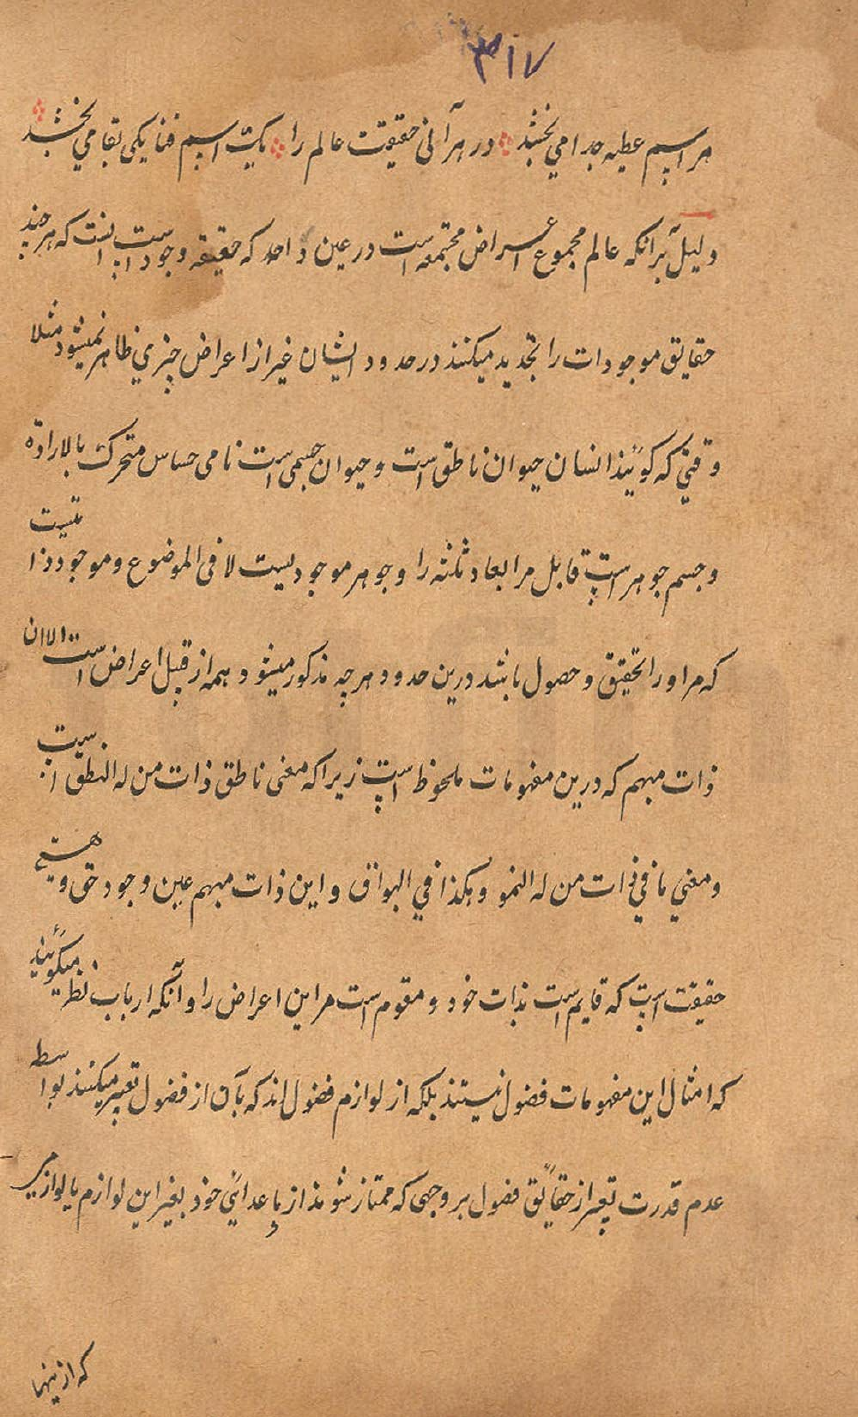 ۳۱۷
هر اسم عطیه جدا می بخشد در هر آنی حقیقت عالم را یک اسم فنا یکی بقا می بخشد
دلیل برانکه عالم مجموع اعراض مجتمعه است در عین واحد که حقیقه وجود است انست که هر چند
حقایق موجودات را تحدید میکنند در حدود ایشان غیر از اعراض چیزی ظاهر نمیشود مثلا
وقتی که گویند انسان حیوان ناطق است و حیوان جسمی است نامی حساس متحرک بالاراده
و جسم جوهریست قابل مر ابعاد ثلثه را و جوهر موجودیست لا فی الموضوع و موجود ذاتیست
که مر او را تحقیق و حصول باشد درین حدود هر چه مذکور میشود همه از قبیل اعراض است الا ان
ذات مبهم که درین مفهومات ملحوظ است زیرا که معنی ناطق ذات من له النطق است
و معنی نامی ذات من له النمو و هکذا فی البواقی و این ذات مبهم عین وجود حق و هستی
حقیقت است که قایم است بذات خود و مقوم است مر این اعراض را و آنکه ارباب نظر میگویند
که امثال این مفهومات فصول نیستند بلکه از لوازم فصول اند که بآن از فصول تعبیر میکنند بواسطه
عدم قدرت تعبیر از حقایق فصول بر وجهی که ممتاز شوند از ماعدائی خود بغیر این لوازم یا لوازمی
که ازینها